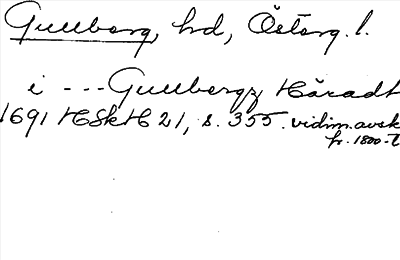 Gullberg, hd, Österg. l.
i --- Gullbergz Häradt
1691 HSkH 21, s. 355. vidim. avskr
fr. 1800-t